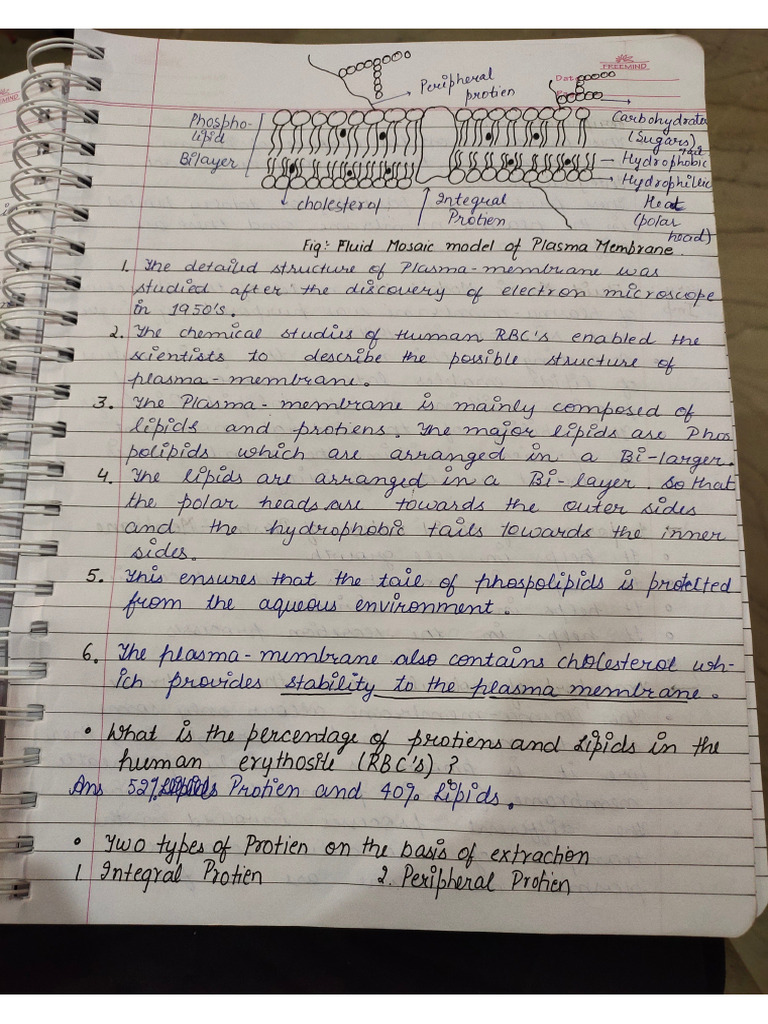 FREEMIND
Peripheral
protien
Phospho-
lipid
Bilayer
Carbohydrate
(Sugars)
tail
Hydrophobic
Hydrophillic
Head
(polar
head)
cholesterol
Integral
Protien
Fig:- Fluid Mosaic model of Plasma Membrane.
1. The detailed structure of Plasma-membrane was
studied after the discovery of electron microscope
in 1950's.
2. The chemical studies of Human RBC's enabled the
scientists to describe the possible structure of
plasma-membrane.
3. The Plasma-membrane is mainly composed of
lipids and protiens. The major lipids are Phos
polipids which are arranged in a Bi-larger.
4. The lipids are arranged in a Bi-layer. So that
the polar heads are towards the outer sides
and the hydrophobic tails towards the inner
sides.
5. This ensures that the tail of phospolipids is protected
from the aqueous environment.
6. The plasma-membrane also contains cholesterol wh-
ich provides stability to the plasma membrane.
• What is the percentage of protiens and Lipids in the
human erythosite (RBC's)?
Ans 52% Protien and 40% Lipids.
• Two types of Protien on the basis of extraction
1. Integral Protien 2. Peripheral Protien